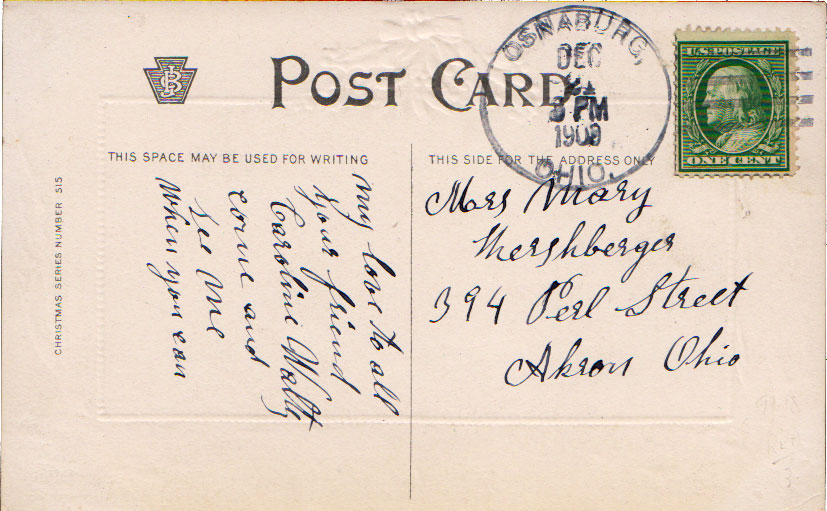 POST CARD
OSNABURG,
DEC
3 PM
1909
OHIO.
U.S. POSTAGE
ONE CENT
THIS SPACE MAY BE USED FOR WRITING
THIS SIDE FOR THE ADDRESS ONLY
CHRISTMAS SERIES NUMBER 515
my love to all
your friend
Caroline Waltz
come and
see me
when you can
Mrs Mary
Hershberger
394 Perl Street
Akron Ohio